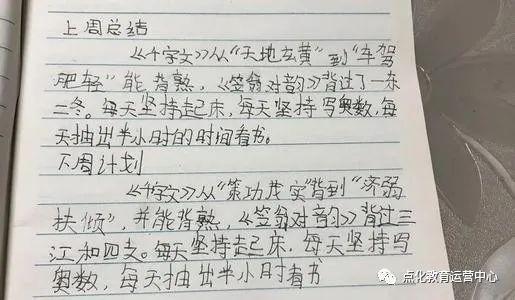 上周总结
《千字文》从“天地玄黄”到“车驾
肥轻”能背熟，《笠翁对韵》背过了一东
二冬。每天坚持起床，每天坚持写奥数，每
天抽出半小时的时间看书。
下周计划
《千字文》从“策功茂实”背到“济弱
扶倾”，并能背熟，《笠翁对韵》背过三
江和四支。每天坚持起床，每天坚持写
奥数，每天抽出半小时看书
点化教育运营中心